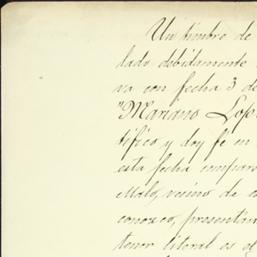 Un timbre de
lado debidamente
va con fecha 3 de
"Mariano Lop
tífico y doy fe en
esta fecha compare
Malo, vecino de e
conozco, presentán
tenor literal es el